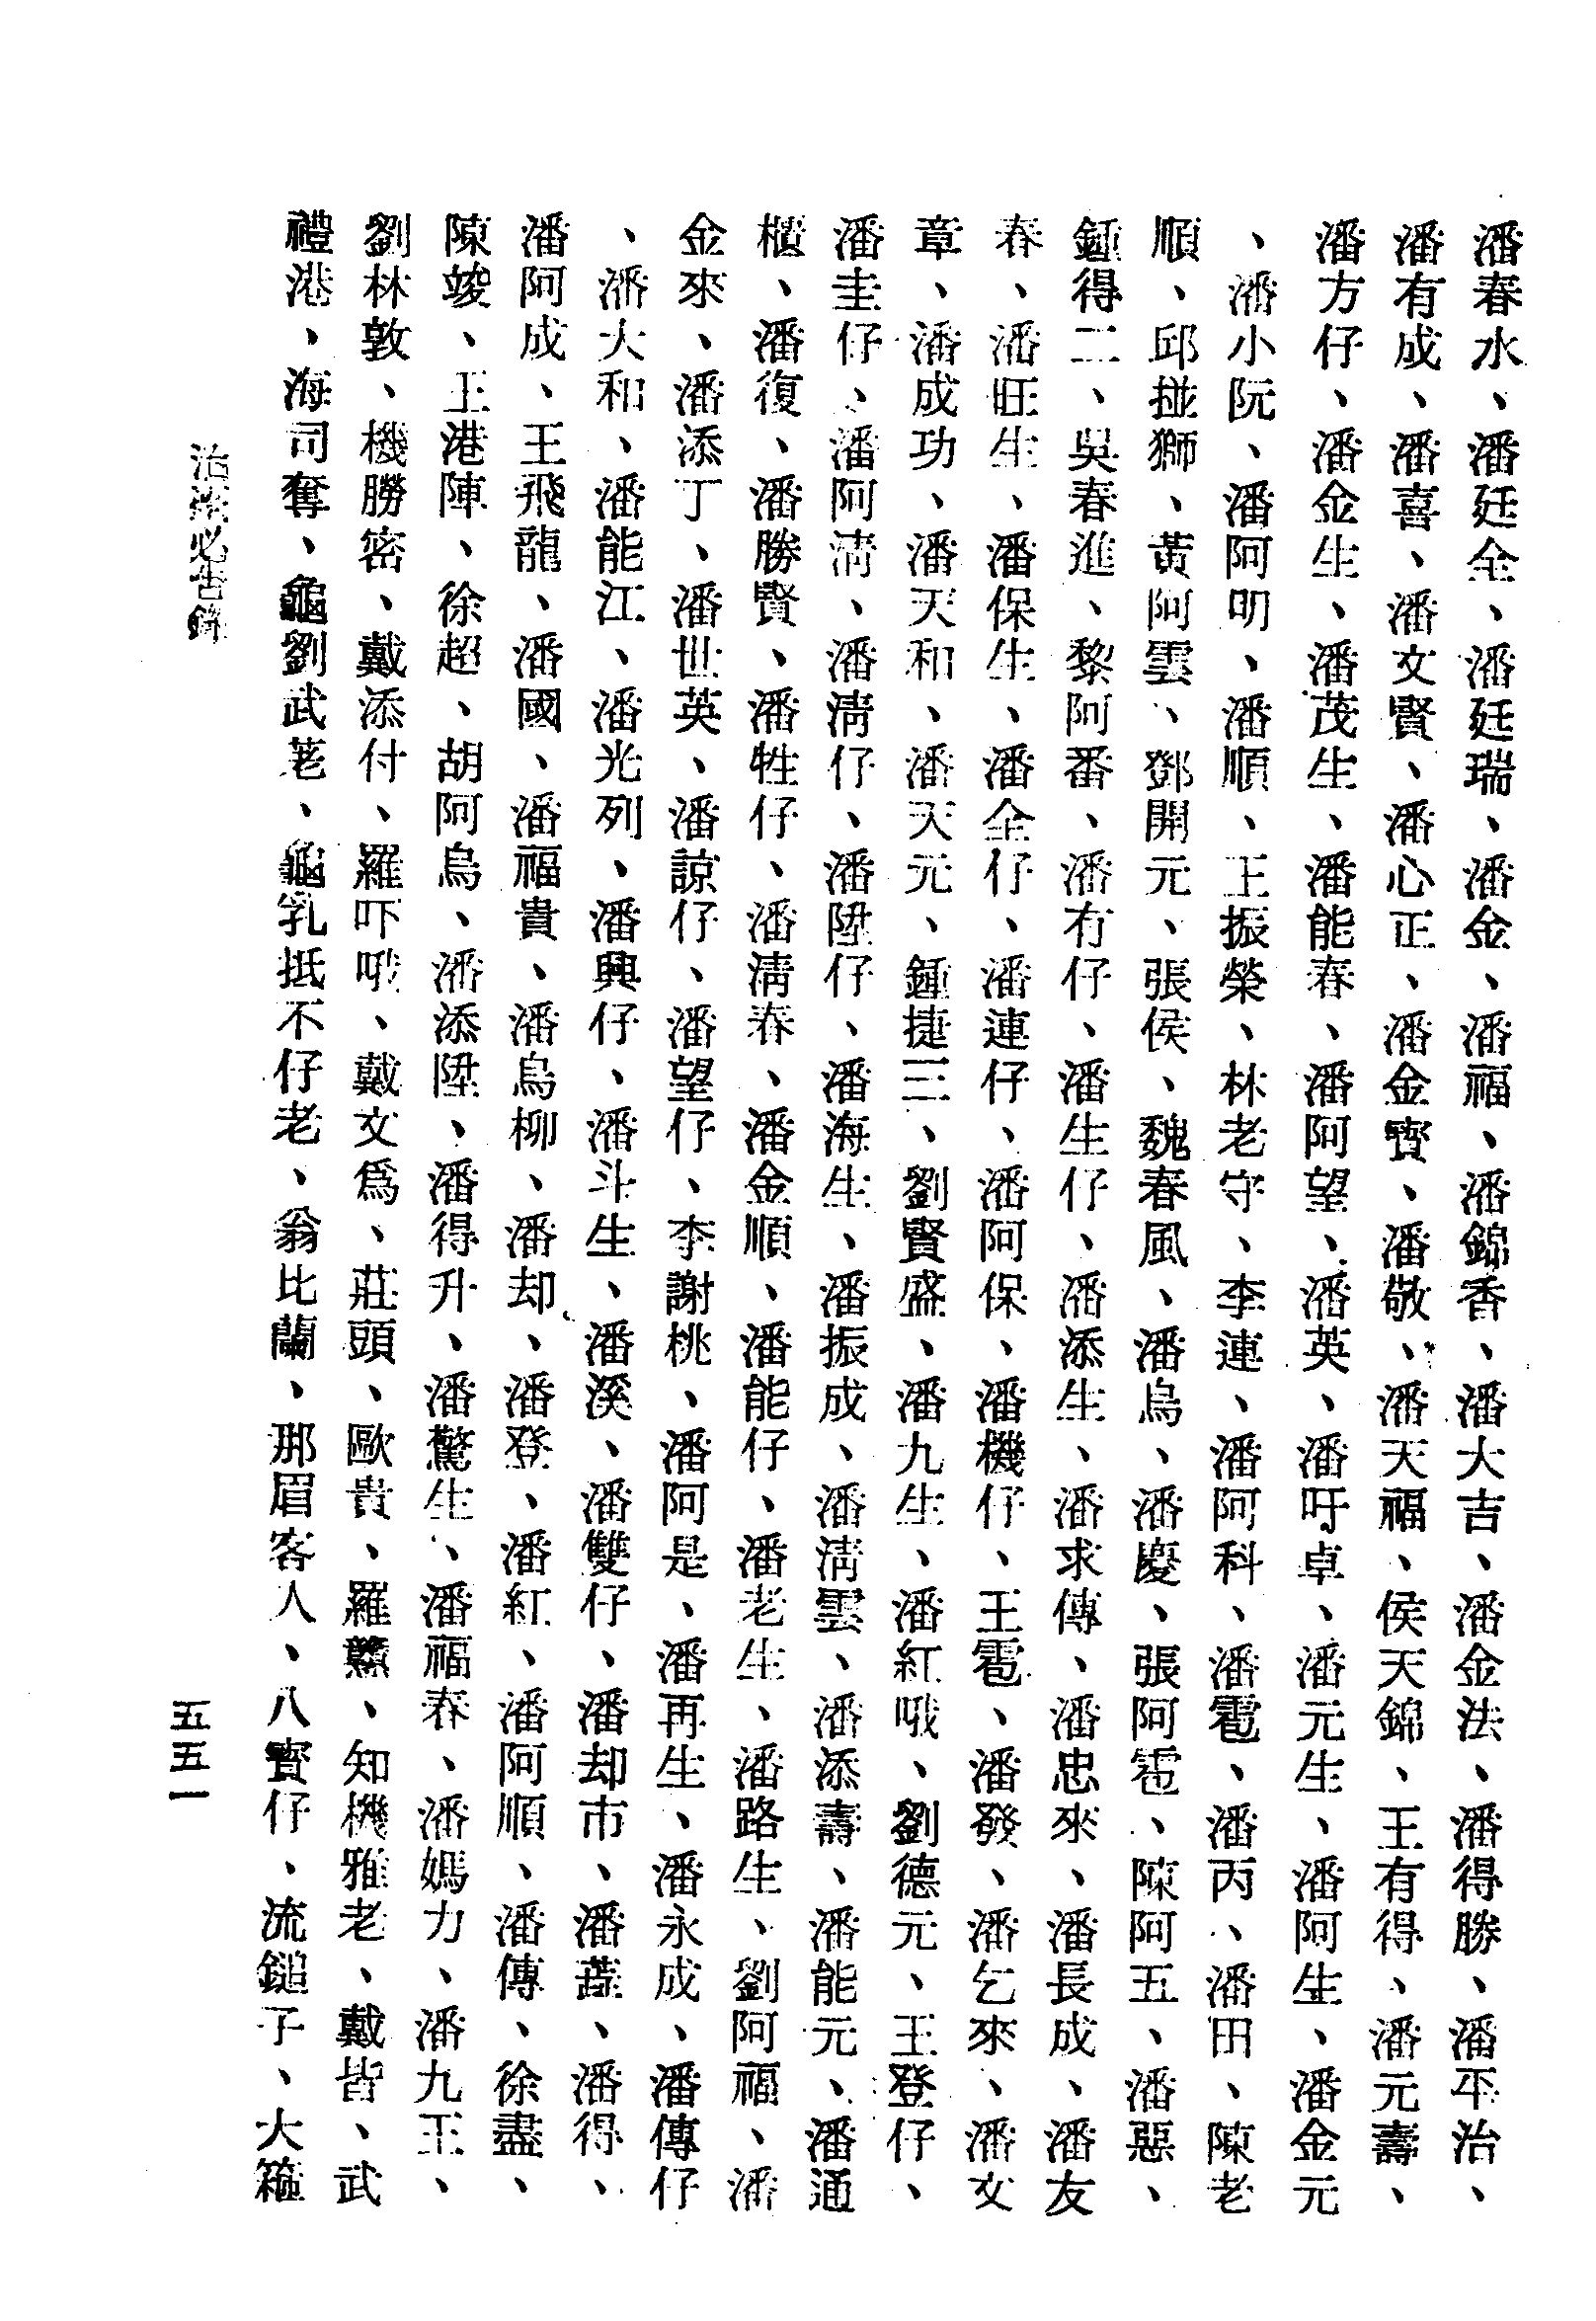 潘春水、潘廷金、潘廷瑞、潘金、潘福、潘錦香、潘大吉、潘金法、潘得勝、潘平治、
潘有成、潘喜、潘文賢、潘心正、潘金寶、潘敬、潘天福、侯天錦、王有得、潘元壽、
潘方仔、潘金生、潘茂生、潘能春、潘阿望、潘英、潘吁卓、潘元生、潘阿生、潘金元
、潘小阮、潘阿叨、潘順、王振榮、林老守、李連、潘阿科、潘雹、潘丙、潘田、陳老
順、邱掽獅、黃阿雲、鄧開元、張侯、魏春風、潘烏、潘慶、張阿雹、陳阿五、潘惡、
鍾得二、吳春進、黎阿番、潘冇仔、潘生仔、潘添生、潘求傳、潘忠來、潘長成、潘友
春、潘旺生、潘保生、潘金仔、潘連仔、潘阿保、潘機仔、王雹、潘發、潘乞來、潘文
章、潘成功、潘天和、潘天元、鍾捷三、劉賢盛、潘九生、潘紅哦、劉德元、王登仔、
潘圭仔、潘阿淸、潘淸仔、潘陞仔、潘海生、潘振成、潘淸雲、潘添壽、潘能元、潘通
櫃、潘復、潘勝賢、潘牲仔、潘淸春、潘金順、潘能仔、潘老生、潘路生、劉阿福、潘
金來、潘添丁、潘世英、潘諒仔、潘望仔、李謝桃、潘阿是、潘再生、潘永成、潘傳仔
、潘大和、潘能江、潘光列、潘興仔、潘斗生、潘溪、潘雙仔、潘却市、潘蔬、潘得、
潘阿成、王飛龍、潘國、潘福貴、潘烏柳、潘却、潘登、潘紅、潘阿順、潘傳、徐盡、
陳竣、王港陣、徐超、胡阿烏、潘添陞、潘得升、潘驚生、潘福春、潘媽力、潘九王、
劉林敦、機勝密、戴添付、羅吓哦、戴文爲、莊頭、歐貴、羅戇、知機雅老、戴皆、武
禮港、海司奪、龜劉武荖、龜乳抵不仔老、翁比蘭、那眉客人、八寶仔、流鎚子、大箍
治臺必告錄
五五一